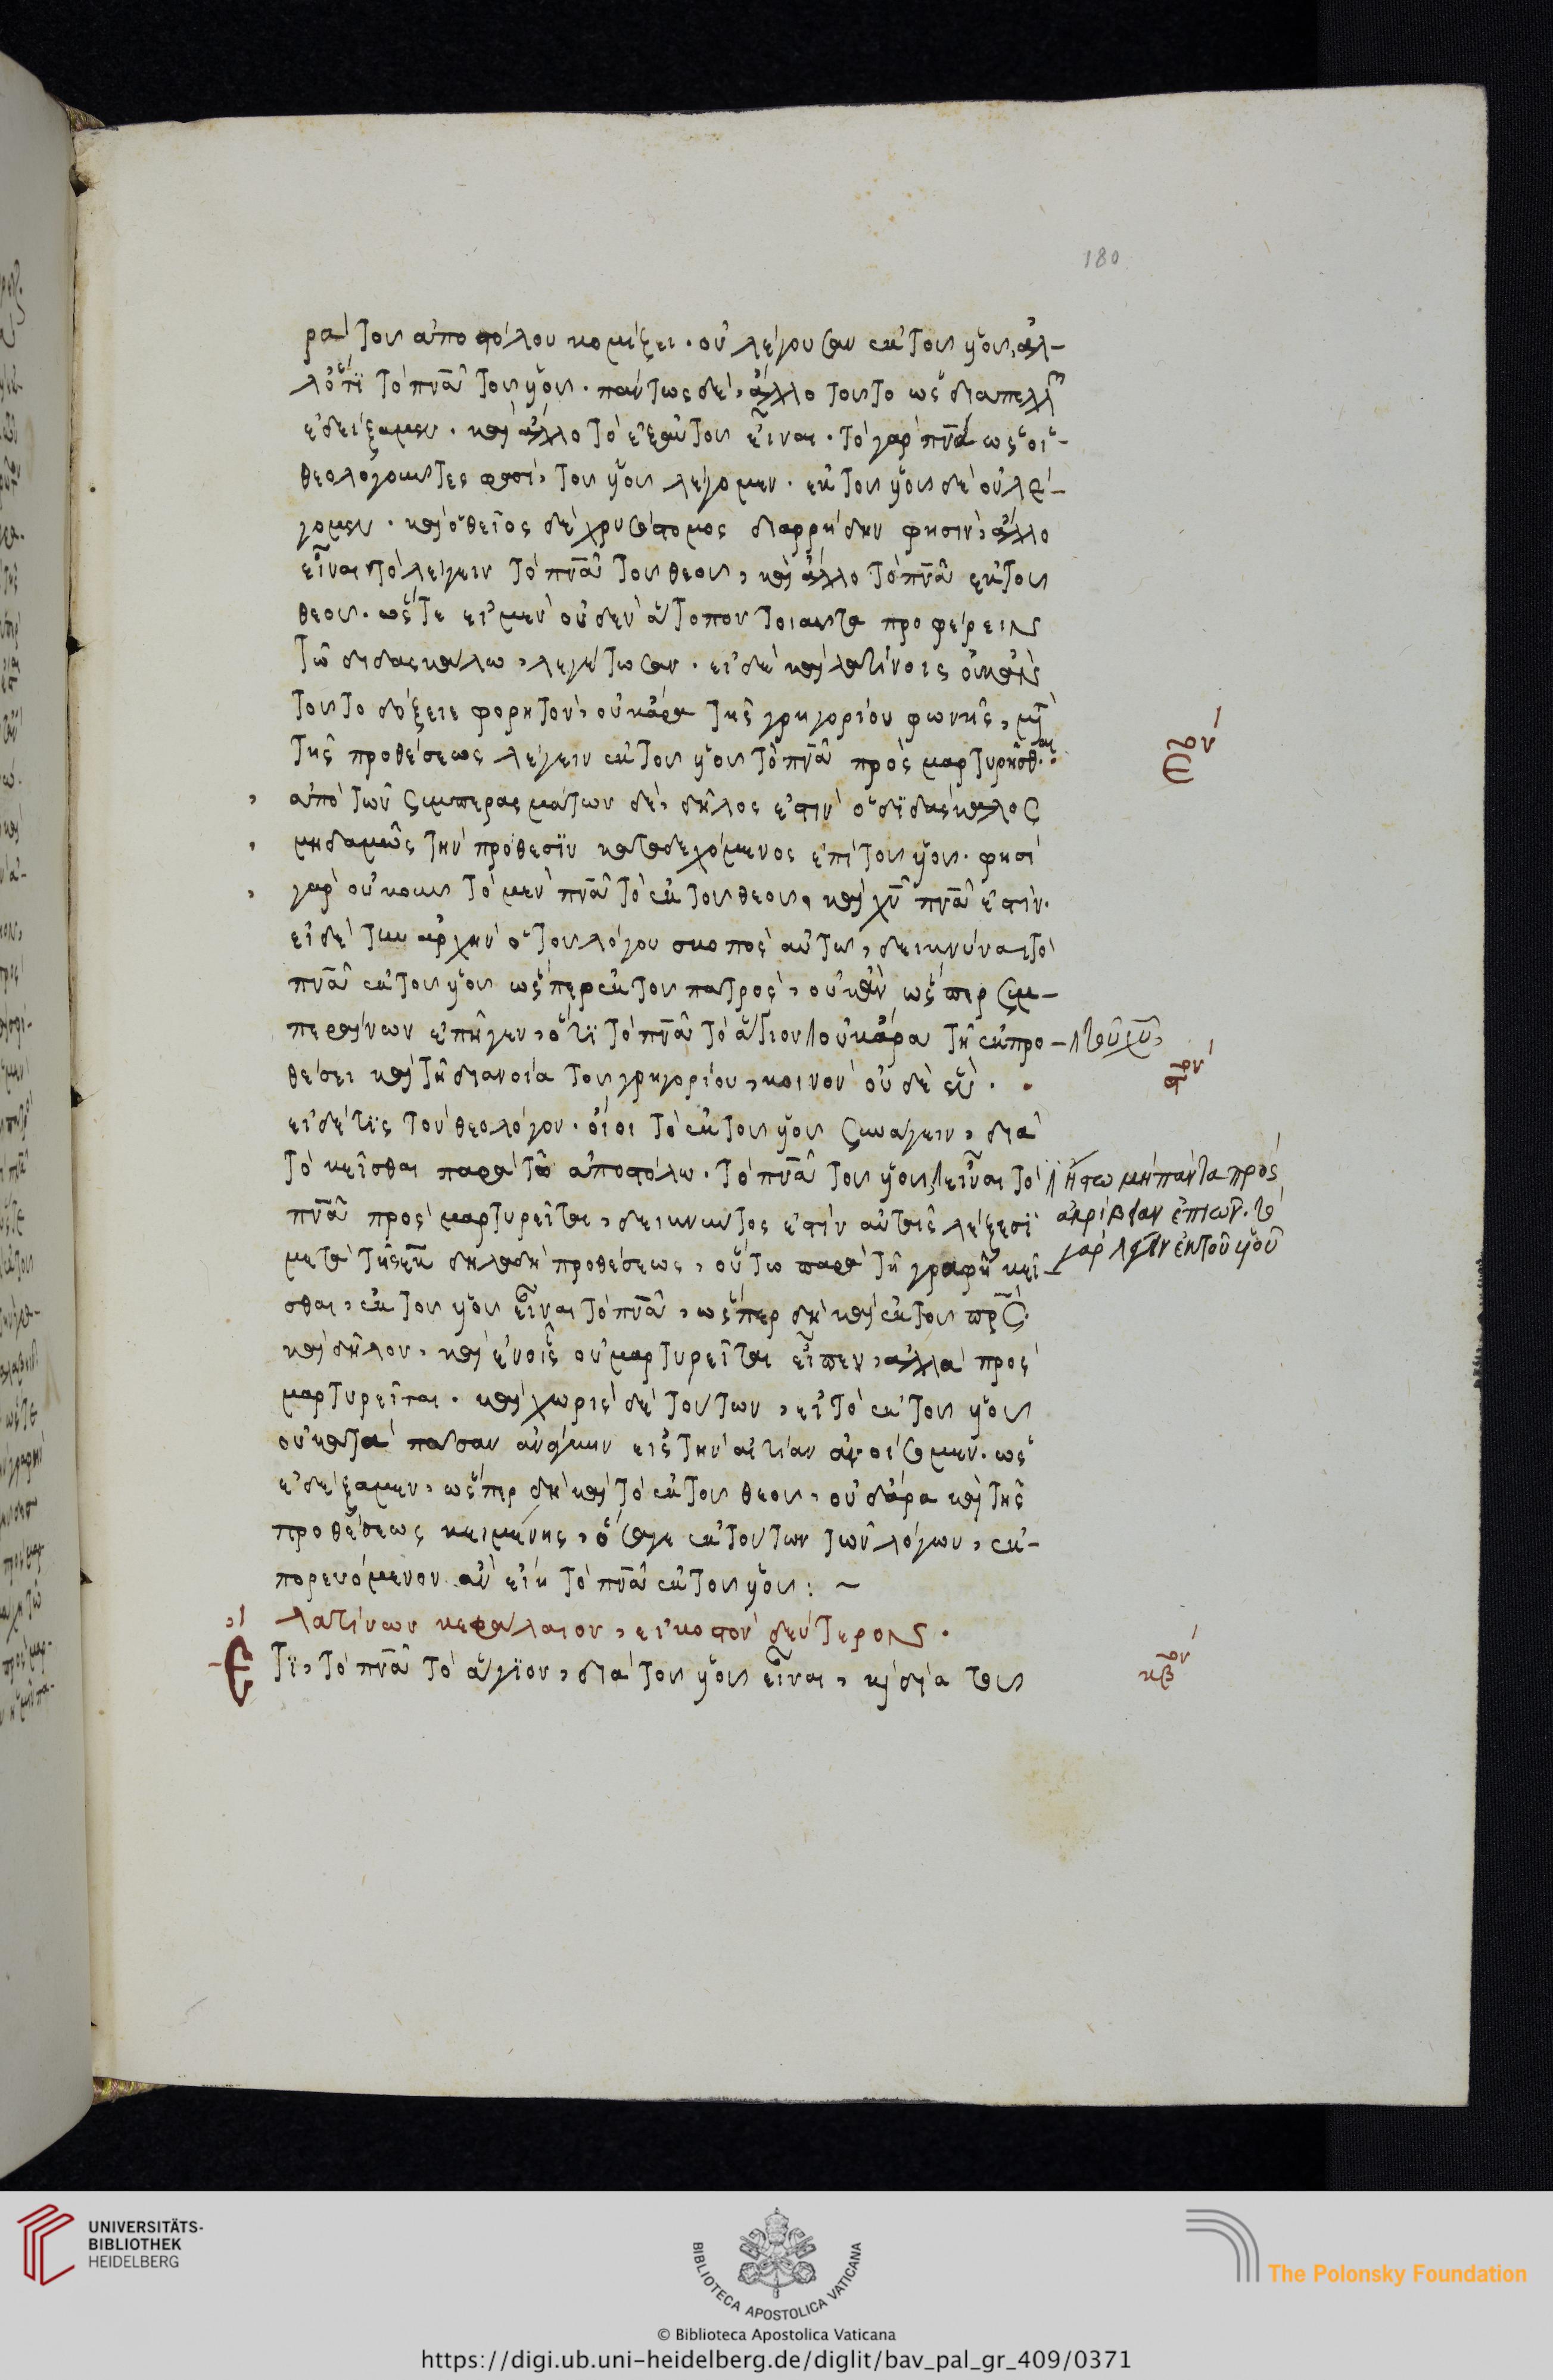 180
ρὰ τοῦ ἀποστόλου κομίζει. οὐ λέγουσαν ἐκ τοῦ υἱοῦ, ἀλ-
λότι τὸ πνᾶ τοῦ υἱοῦ. πάντως δὲ, ἄλλο τοῦτο ὡς
ἐδείξαμεν. καὶ ἄλλο τὸ ἐξ αὐτοῦ εἶναι. τὸ γὰρ πνᾶ ὡς οἱ
θεολογοῦντες φασὶ, τοῦ υἱοῦ λέγομεν. ἐκ τοῦ υἱοῦ δὲ οὐ λέ-
γομεν. καὶ ὁ θεῖος δὲ χρυσόστομος διαρρήδην φησὶν, ἄλλο
εἶναι τὸ λέγειν τὸ πνᾶ τοῦ θεοῦ, καὶ ἄλλο τὸ πνᾶ ἐκ τοῦ
θεοῦ. ὥστε εἰ μὲν οὐδὲν ἄτοπον τοιαῦτα προφέρειν
τῶ διδασκάλω, λεγέτωσαν. εἰ δὲ καὶ λατίνοις οὐκ ἂν
τοῦτο δόξειε φορητὸν, οὐκ ἄρα τῆς γρηγορίου φωνῆς, μὴ
τῆς προθέσεως λέγειν ἐκ τοῦ υἱοῦ τὸ πνᾶ προσμαρτυρησθ.
ἀπὸ τῶν συμπερασμάτων δὲ, δῆλος ἐστὶν ὁ διδάσκαλος
μηδαμῶς τὴν πρόθεσιν καταδεχόμενος ἐπὶ τοῦ υἱοῦ. φησὶ
γὰρ οὐκοῦν τὸ μὲν πνᾶ τὸ ἐκ τοῦ θεοῦ, καὶ χῦ πνᾶ ἐστίν.
εἰ δὲ τὴν ἀρχὴν ὁ τοῦ λόγου σκοπὸς αὐτῶ, δεικνύναι τὸ
πνᾶ ἐκ τοῦ υἱοῦ ὥσπερ ἐκ τοῦ πατρὸς, οὐκ ἂν ὥσπερ συμ-
περαίνων ἐπῆγεν, ὅτι τὸ πνᾶ τὸ ἅγιον οὐκ ἄρα τῆ ἐκ προ-
τοῦ χῦ,
θέσει καὶ τῆ διανοία τοῦ γρηγορίου, κοινὸν οὐδὲ
εἰ δέ τις τὸν θεολόγον. οἴοι τὸ ἐκ τοῦ υἱοῦ συνάγειν, διὰ
τὸ κεῖσθαι παρὰ τῶ ἀποστόλω. τὸ πνᾶ τοῦ υἱοῦ, εἶναι τὸ
ἤτω μὴ πάντα πρὸς
ἀκρίβειαν ἐπιών. τὸ
γὰρ ἐκ τοῦ υἱοῦ
πνᾶ προσμαρτυρεῖται, δεικνύντος ἐστὶν αὐταῖς λέξεσι
μετὰ τῆς ἐκ δηλαδὴ προθέσεως, οὕτω παρὰ τῆ γραφῆ κεῖ-
σθαι, ἐκ τοῦ υἱοῦ εἶναι τὸ πνᾶ, ὥσπερ δὴ καὶ ἐκ τοῦ πρς
καὶ δῆλον, καὶ ἐν οἷς οὐ μαρτυρεῖται εἶπεν, ἀλλὰ προς
μαρτυρεῖται. καὶ χωρὶς δὲ τούτων, εἰ τὸ ἐκ τοῦ υἱοῦ
οὐ κατὰ πᾶσαν ἀνάγκην εἰς τὴν αἰτίαν ὡς
ἐδείξαμεν, ὥσπερ δὴ καὶ τὸ ἐκ τοῦ θεοῦ, οὐδ ἄρα καὶ τῆς
προθέσεως κειμένης, ὅσα γε ἐκ τούτων τῶν λόγων, ἐκ-
πορευόμενον ἂν εἴη τὸ πνᾶ ἐκ τοῦ υἱοῦ: ~
λατίνων κεφάλαιον, εἰκοστὸν δεύτερον.
Ἔτι, τὸ πνᾶ τὸ ἅγιον, διὰ τοῦ υἱοῦ εἶναι, καὶ διὰ τοῦ
κβον
UNIVERSITÄTS-
BIBLIOTHEK
HEIDELBERG
BIBLIOTECA APOSTOLICA VATICANA
The Polonsky Foundation
© Biblioteca Apostolica Vaticana
https://digi.ub.uni-heidelberg.de/diglit/bav_pal_gr_409/0371